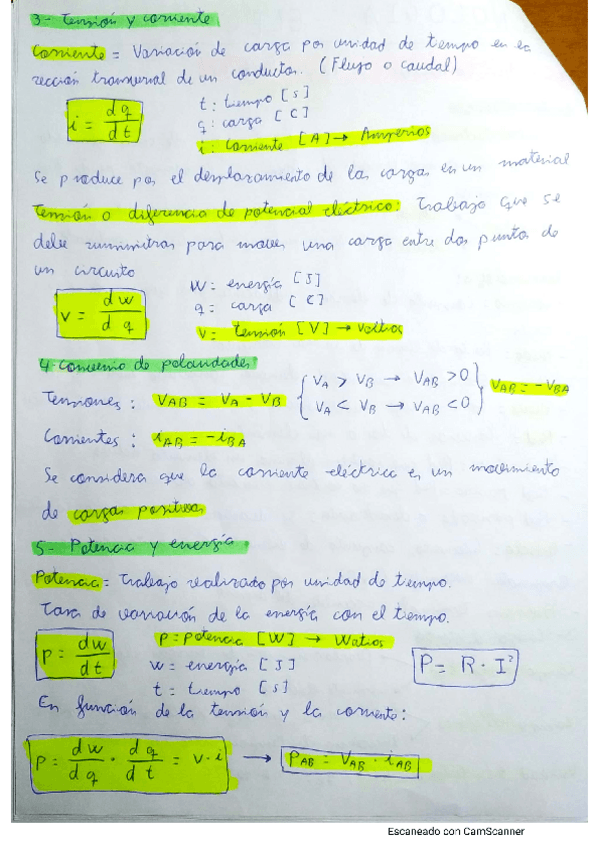 3- Tensión y corriente
Corriente = Variación de carga por unidad de tiempo en la
sección transversal de un conductor. (Flujo o caudal)
i = dq/dt
t: tiempo [s]
q: carga [C]
i: corriente [A] → Amperios
Se produce por el desplazamiento de las cargas en un material
Tensión o diferencia de potencial eléctrico: Trabajo que se
debe suministrar para mover una carga entre dos puntos de
un circuito
v = dw/dq
W: energía [J]
q: carga [C]
v: tensión [V] → Voltios
4- Convenio de polaridades
Tensiones: VAB = VA - VB { VA > VB → VAB > 0
VA < VB → VAB < 0 } VAB = -VBA
Corrientes: iAB = -iBA
Se considera que la corriente eléctrica es un movimiento
de cargas positivas
5- Potencia y energía.
Potencia = Trabajo realizado por unidad de tiempo.
Tasa de variación de la energía con el tiempo.
p = dw/dt
p = potencia [W] → Watios
w = energía [J]
t = tiempo [s]
P = R · I²
En función de la tensión y la corriente:
p = dw/dq · dq/dt = v · i → PAB = VAB · iAB
Escaneado con CamScanner